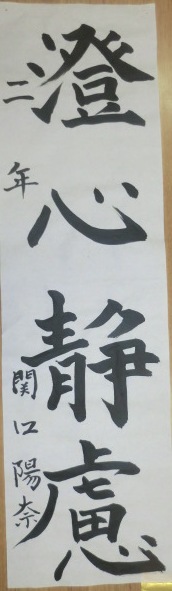 澄心静慮
二年 関口陽奈